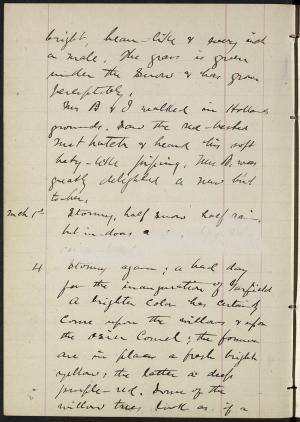 bright, bean-like & every inch
a male. The grass is green
under the snow & has grown
perceptibly.
Mrs B & I walked in Hollands
grounds. Saw the red-bellied
nuthatch & heard his soft
baby-like piping. Mrs B. was
greatly delighted a new bird
to her.
Mch 1st Stormy, half snow half rain,
but in-doors a
4 Stormy again; a bad day
for the inauguration of Garfield
A brighter color has certainly
come upon the willows & upon
the osier Cornel; the former
are in places a fresh bright
yellow; the latter a deep
purple-red. Some of the
willow trees look as if a